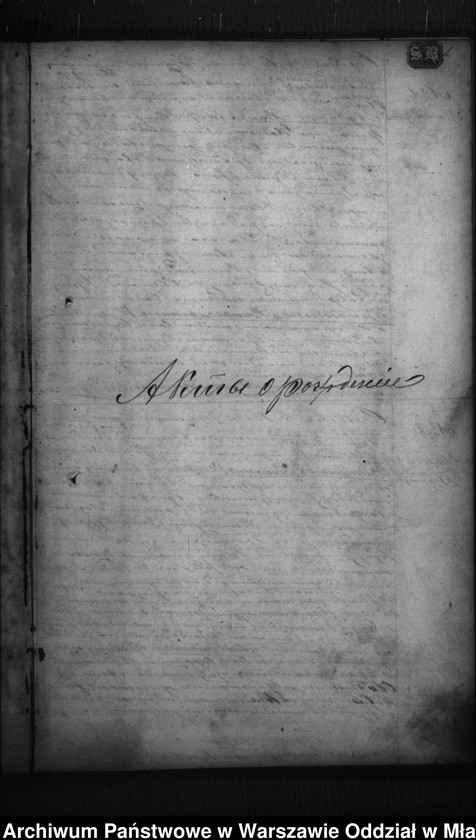 S.B.
Акты о рожденіе
Archiwum Państwowe w Warszawie Oddział w Mła